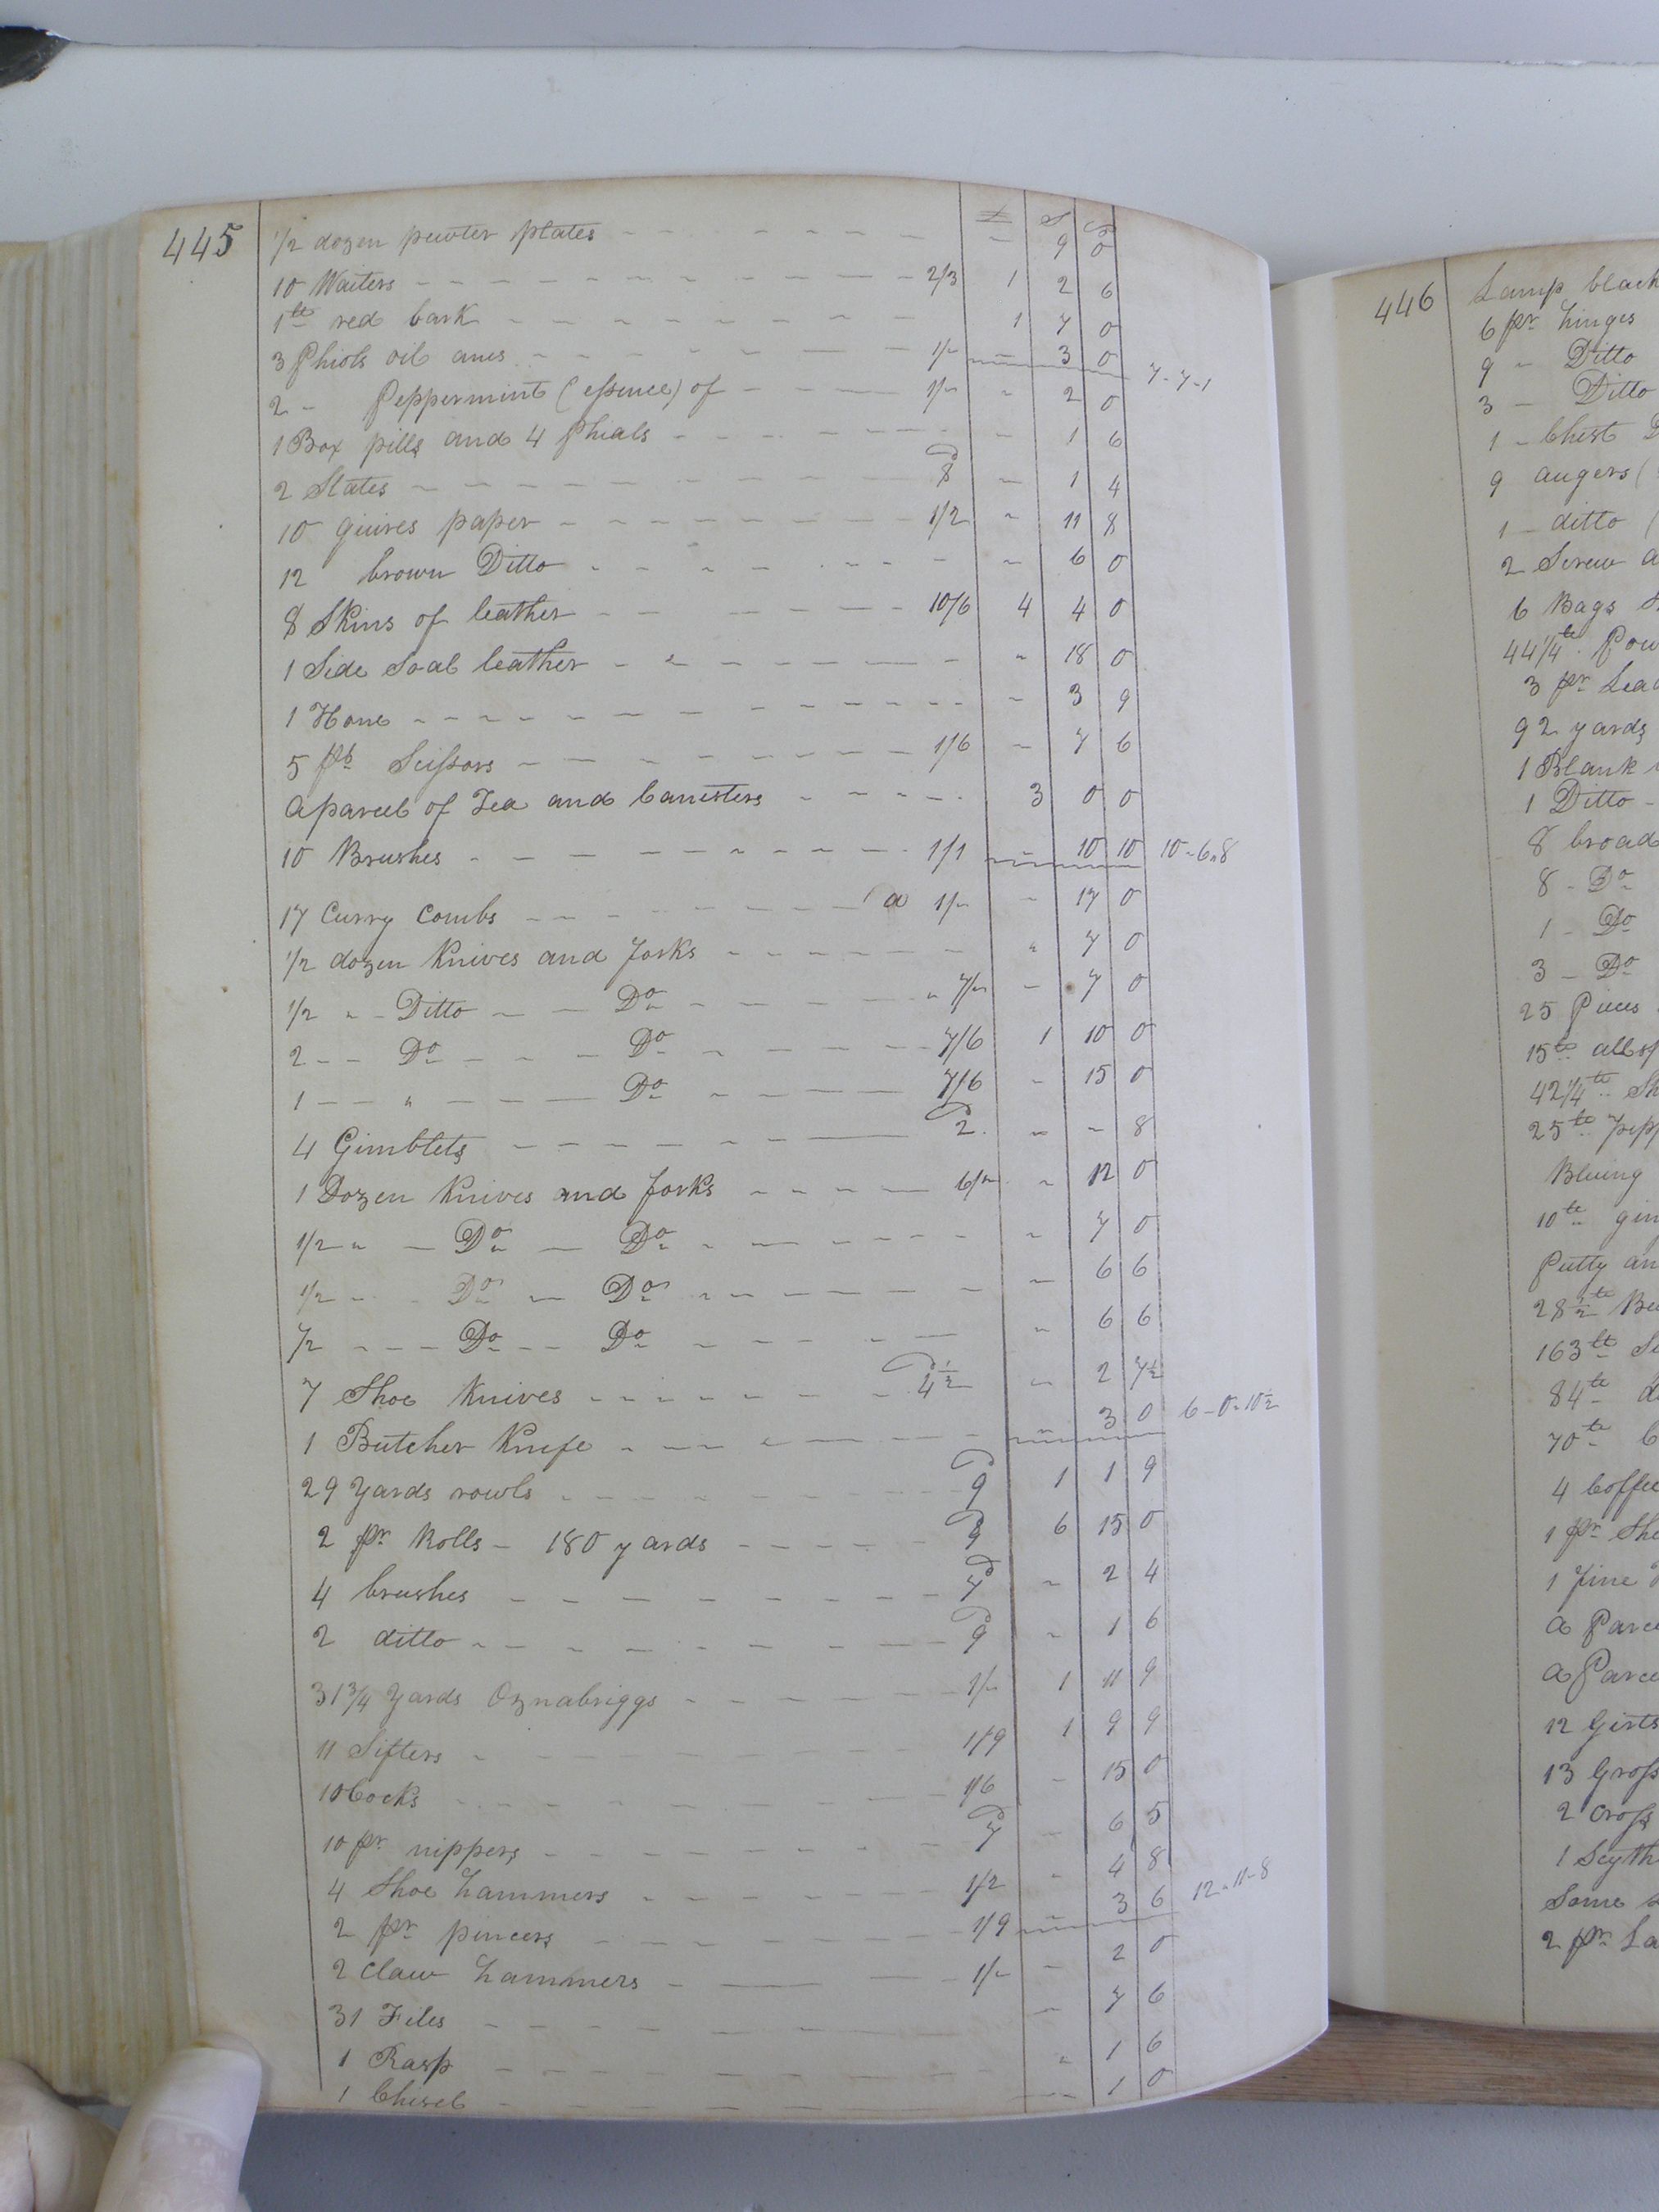 445
£ S D
1/2 dozen pewter plates - 9 0
10 Waiters 2/3 1 2 6
1 lb red bark 1 7 0
3 Phiols oil anes 1/- - 3 0 7-7-1
2 - Peppermint (essence) of 1/- - 2 0
1 Box pills and 4 phials - 1 6
2 Slates 8d - 1 4
10 quires paper 1/2 - 11 8
12 brown Ditto - 6 0
8 Skins of leather 10/6 4 4 0
1 Side Soal leather - 18 0
1 Hone - 3 9
5 pr Scissors 1/6 - 7 6
A parcel of Tea and Canisters 3 0 0
10 Brushes 1/1 - 10 10 10-6-8
17 Curry Combs a 1/- - 17 0
1/2 dozen Knives and Forks " 7 0
1/2 " - Ditto - Do " 7/- - 7 0
2 - - Do - Do 7/6 1 10 0
1 - - " - Do 7/6 - 15 0
4 Gimblets 2d - - 8
1 Dozen Knives and forks 6/- - 12 0
1/2 " - Do - Do " 7 0
1/2 - - Do - Do - 6 6
1/2 - - Do - Do " 6 6
7 Shoe Knives 4 1/2d " 2 7 1/2
1 Butcher Knife - 3 0 6-0-10 1/2
29 Yards rowls 9d 1 1 9
2 pr Rolls - 180 yards 9d 6 15 0
4 brushes 7d - 2 4
2 ditto 9d - 1 6
31 3/4 Yards Oznabriggs 1/- 1 11 9
11 Sifters 1/9 1 9 9
10 Cocks 1/6 - 15 0
10 pr nippers 7d - 6 5
4 Shoe hammers 1/2 - 4 8
2 pr pincers 1/9 - 3 6 12-11-8
2 Claw hammers 1/- - 2 0
31 Files - 7 6
1 Rasp " 1 6
1 Chisel - 1 0
446
Lamp black
6 pr hinges
9 - Ditto
3 - Ditto
1 - Chest
9 augers (
1 - ditto (
2 Screw
6 Bags
44 1/4 lb
3 pr
92 yards
1 Blank
1 Ditto -
8 broad
8 - Do
1 - Do
3 - Do
25 Pieces
15 lb
42 1/4 lb
25 lb
Bluing
10 lb
Putty
28 1/2 lb
163 lb
84 lb
70 lb
4
1 pr
1 fine
A
A
12 Girts
13 Gross
2 Cross
1
Some
2 pr